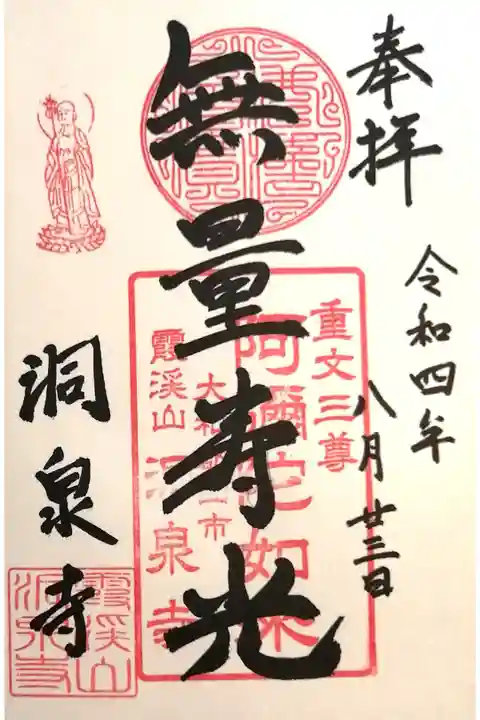 奉拝
令和四年
八月廿三日
無量寿光
重文三尊
阿彌陀如来
大和郡山市
霞渓山 洞泉寺
洞泉寺
霞渓山
洞泉寺